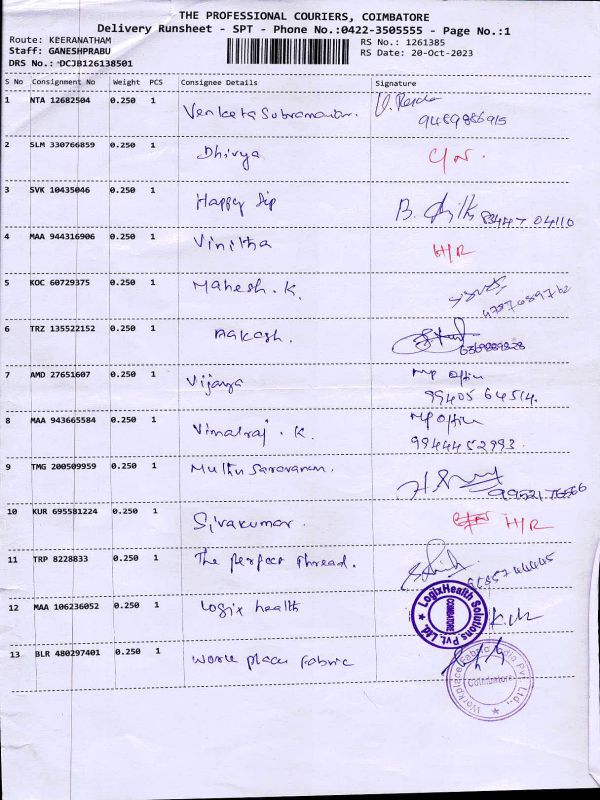 THE PROFESSIONAL COURIERS, COIMBATORE
Delivery Runsheet - SPT - Phone No.:0422-3505555 - Page No.:1
Route: KEERANATHAM
Staff: GANESHPRABU
DRS No.: DCJB126138501
RS No.: 1261385
RS Date: 20-Oct-2023
S No Consignment No Weight PCS Consignee Details Signature
1 NTA 12682504 0.250 1 Venkata Subramanian.
2 SLM 330766859 0.250 1 Dhivya
3 SVK 10435046 0.250 1 Happy Sip B. 83447 04110
4 MAA 944316906 0.250 1 Vinitha H/R
5 KOC 60729375 0.250 1 Mahesh. K.
6 TRZ 135522152 0.250 1 Aakash.
7 AMD 27651607 0.250 1 Vijaya office
99405 64514.
8 MAA 943665584 0.250 1 Vimalraj. K. office
9944452993
9 TMG 200509959 0.250 1 Muthu Saravanan.
10 KUR 695581224 0.250 1 Sivakumar. H/R
11 TRP 8228833 0.250 1 The perfect Thread.
12 MAA 106236052 0.250 1 Logix health
LogixHealth Solutions Pvt. Ltd. COIMBATORE
13 BLR 480297401 0.250 1 Work place Fabric
Workplace Fabric India Pvt. Ltd. Coimbatore